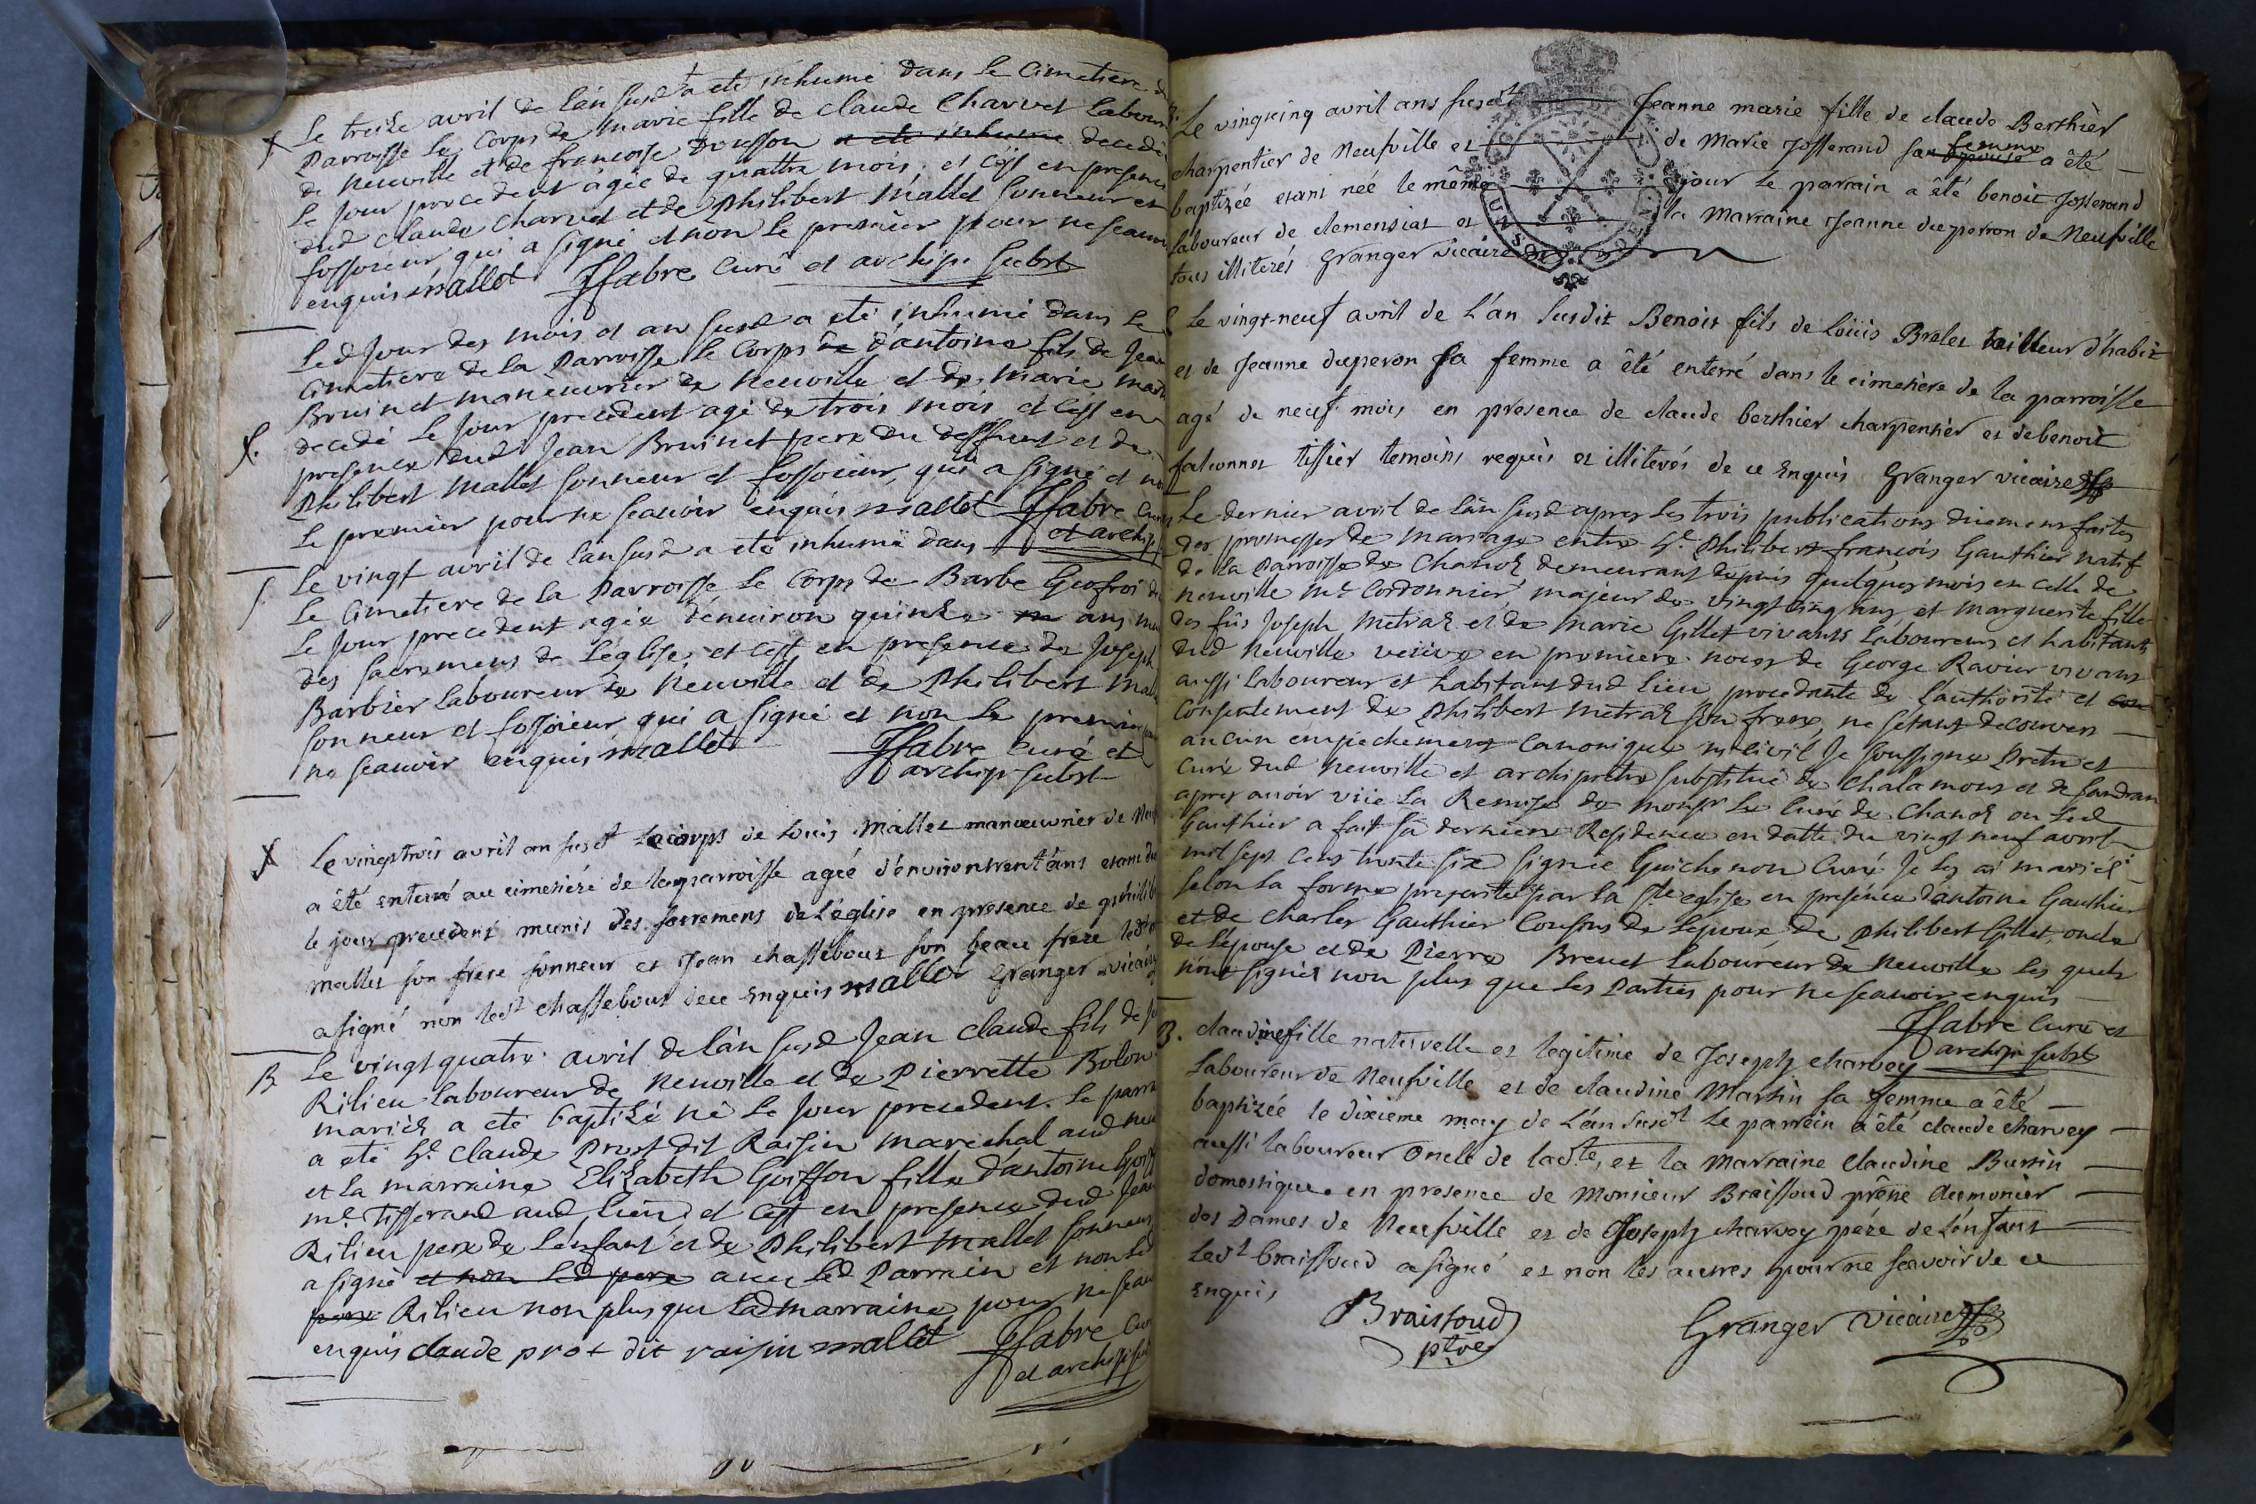 Le treize avril de l'an susd a ete inhumé dans le Cimetiere
Parroisse le Corps de marie fille de claude Charvet Labour
de neuville et de francoise Dousson a ete inhume decedée
le jour precedent agée de quattre mois, et c'est en presence
dud claude Charvet et de Philibert Mallet Sonneur et
fossoieur qui a signé et non le premier pour ne scauoir
enquis mallet JFabre Curé et archip. subst
Led Jour des mois et an susd a eté inhumé dans le
Cimetiere de la Parroisse le Corps de d'antoine fils de Jean
Bruinet maneuvrier de Neuville et de marie
S. decedé le jour precedent agé de trois mois, et c'est en
presence dud Jean Bruinet pere du deffunt et de
Philibert Mallet sonneur et fossoieur, qui a signé et no
le premier pour ne scavoir enquis mallet JFabre Curé
et archip
S. Le vingt avril de l'an susd a eté inhumé dans
le Cimetiere de la Parroisse le Corps de Barbe Geofroi
le jour precedent agée d'enuiron quinze ans
des sacremens de l'eglise, et c'est en presence de Joseph
Barbier Laboureur de neuville et de Philibert Mal
sonneur et fossoieur qui a signé et non le premier
ne scauoir enquis mallet JFabre Curé et
archip subst
Le vingt trois avril an susdt le corps de Louis Mallet manoeuvrier de Neuf
a été enterré au cimetiére de la parroisse ageé d'environ trent'ans etant
le jour precedent munis des sacremens de l'église en presence de philib
mallet son frere sonneur et Jean chassebout son beau frere
a signé non ledt chassebout de ce Enquis mallet Granger vicaire
B Le vingt quatre avril de l'an susd Jean Claude fils de
Rilieu laboureur de neuville et de Pierrette Bolon
mariés a eté baptizé né le jour precedent. Le parra
a eté Sr. claude Prost dit Raisin marechal aud neu
et la marraine Elizabeth Goiffon fille d'antoine Goiff
me. Tisserand aud lieu, et c'est en presence dud Jean
Rilieu pere de l'enfant et de Philibert Mallet sonneur
a signé et non led pere avec led Parrain et non led
pere Rilieu non plus que lad marraine pour ne scau
enquis claude prost dit raisin mallet JFabre Cur
et archip sub
Le vingcinq avril ans susdt Jeanne marie fille de claude Berthier
charpentier de Neufville et de Marie Josserand sa epouse femme a êté
baptizée etant née le même jour le parrain a êté benoit Josserand
laboureur de clemensiat et la Marraine Jeanne duperron de Neufville
tous illiterés Granger vicaire
Le vingt-neuf avril de L'an susdit Benoit fils de Loüis Brelet tailleur d'habit
et de Jeanne duperon sa femme a êté enterré dans le cimetiére de la parroisse
agé de neuf mois en presence de claude berthier charpentiér et de benoit
falconnet tissier temoins requis et illiterés de ce Enquis Granger vicaire
Le dernier avril de l'an susd apres les trois publications düement faites
des promesses de mariage entre Sr. Philibert françois Gauthier natif
de la Parroisse de Chanoz demeurant depuis quelques mois en celle de
neuville me. Cordonnier majeur de vingt cinq ans et marguerite fille
des fûs Joseph Metraz et de Marie Gillet vivants laboureurs et habitants
dud neuville veüve en premiere noces de George Ravier vivant
aussi laboureur et habitant dud lieu procedante de l'authorité et con
consentement de Philibert metraz son frere, ne s'etant decouvert
aucun empechement canonique ni civil Je soussigne Pretre et
curé dud neuville et archipretre substitué de Chalamont et de Sandran
apres auoir vüe la Remise de monsr. le Curé de Chanoz ou led
Gauthier a fait sa derniere Residence en datte du vingt neuf avril
mil sept cens trente six signée Guichenon Curé Je les ai mariés
selon la forme prescrite par la ste eglise en presence d'antoine Gauthier
et de charles Gauthier Cousins de l'epoux de Philibert Gillet, oncle
de l'epouse et de Pierre Brevet laboureur de neuville les quels
n'ont signés non plus que les Parties pour ne scauoir enquis
JFabre Curé et
archip subst
B. claudine fille naturelle et legitime de Joseph charvey
Laboureur de Neufville et de claudine Martin sa femme a êté
baptizée le dixieme may de L'an susdt le parrein a êté claude charvey
aussi laboureur oncle de ladte, et la Marraine Claudine Burtin
domestique en presence de Monsieur Braissoud prêtre Aumonier
des Dames de Neufville et de Joseph charvey pére de L'enfant
ledt braissoud a signé et non les autres pour ne scavoir de ce
Enquis
Braissoud
ptre
Granger vicaire